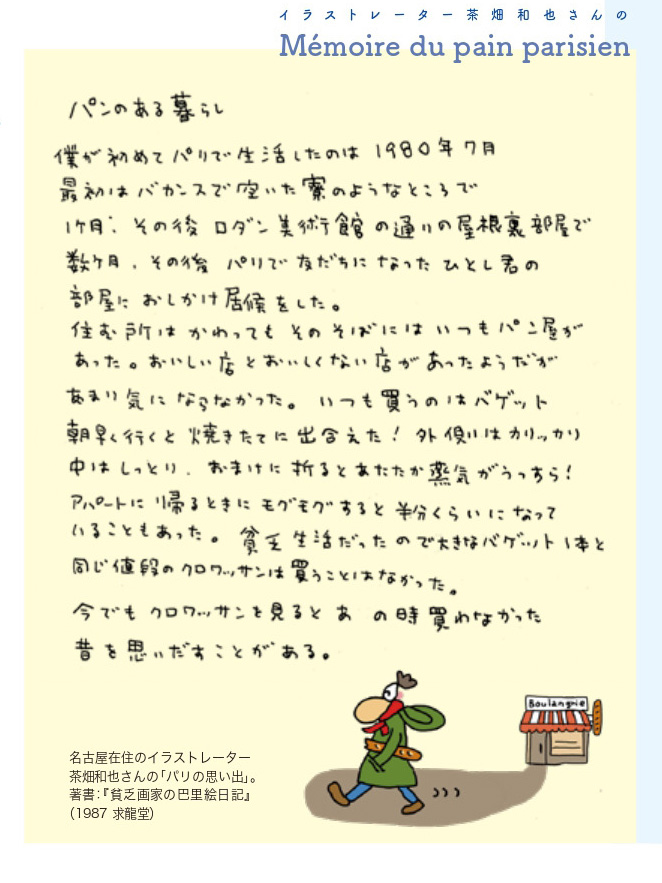 イラストレーター茶畑和也さんの
Mémoire du pain parisien
パンのある暮らし
僕が初めてパリで生活したのは 1980年7月
最初はバカンスで空いた寮のようなところで
1ケ月、その後ロダン美術館の通りの屋根裏部屋で
数ケ月、その後 パリで友だちになったひとし君の
部屋におしかけ居候をした。
住む所はかわってもそのそばにはいつもパン屋が
あった。おいしい店とおいしくない店があったようだが
あまり気にならなかった。いつも買うのはバゲット
朝早く行くと焼きたてに出合えた！外側はカリッカリ
中はしっとり、おまけに折るとあたたか蒸気がうっすら！
アパートに帰るときにモグモグすると半分くらいになって
いることもあった。貧乏生活だったので大きなバゲット1本と
同じ値段のクロワッサンは買うことはなかった。
今でもクロワッサンを見るとあの時買わなかった
昔を思いだすことがある。
Boulangrie
名古屋在住のイラストレーター
茶畑和也さんの「パリの思い出」。
著書：『貧乏画家の巴里絵日記』
（1987 求龍堂）